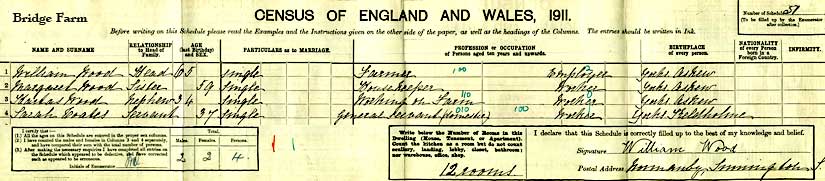 Bridge Farm
CENSUS OF ENGLAND AND WALES, 1911.
Number of Schedule 51
(To be filled up by the Enumerator after collection.)
Before writing on this Schedule please read the Examples and the Instructions given on the other side of the paper, as well as the headings of the Columns. The entries should be written in Ink.
NAME AND SURNAME RELATIONSHIP to Head of Family. AGE (last Birthday) and SEX. PARTICULARS as to MARRIAGE. PROFESSION or OCCUPATION of Persons aged ten years and upwards. BIRTHPLACE of every person. NATIONALITY of every Person born in a Foreign Country. INFIRMITY.
1 William Wood Head 65 Single Farmer 100 Employer Yorks Askew
2 Margaret Wood Sister 59 Single Housekeeper Worker Yorks Askew
3 Wood Nephew 34 Single Working on Farm 110 Worker Yorks Askew
4 Sarah Coates Servant 37 Single general servant (domestic) 100 Worker Yorks
I certify that:—
(1.) All the ages on this Schedule are entered in the proper sex columns.
(2.) I have counted the males and females in Columns 3 and 4 separately, and have compared their sum with the total number of persons.
(3.) After making the necessary enquiries I have completed all entries on the Schedule which appeared to be defective, and have corrected such as appeared to be erroneous.
Initials of Enumerator
Total.
Males. Females. Persons.
2 2 4
Write below the Number of Rooms in this Dwelling (House, Tenement, or Apartment). Count the kitchen as a room but do not count scullery, landing, lobby, closet, bathroom; nor warehouse, office, shop.
12 rooms
I declare that this Schedule is correctly filled up to the best of my knowledge and belief.
Signature William Wood
Postal Address Normanby, Sinnington